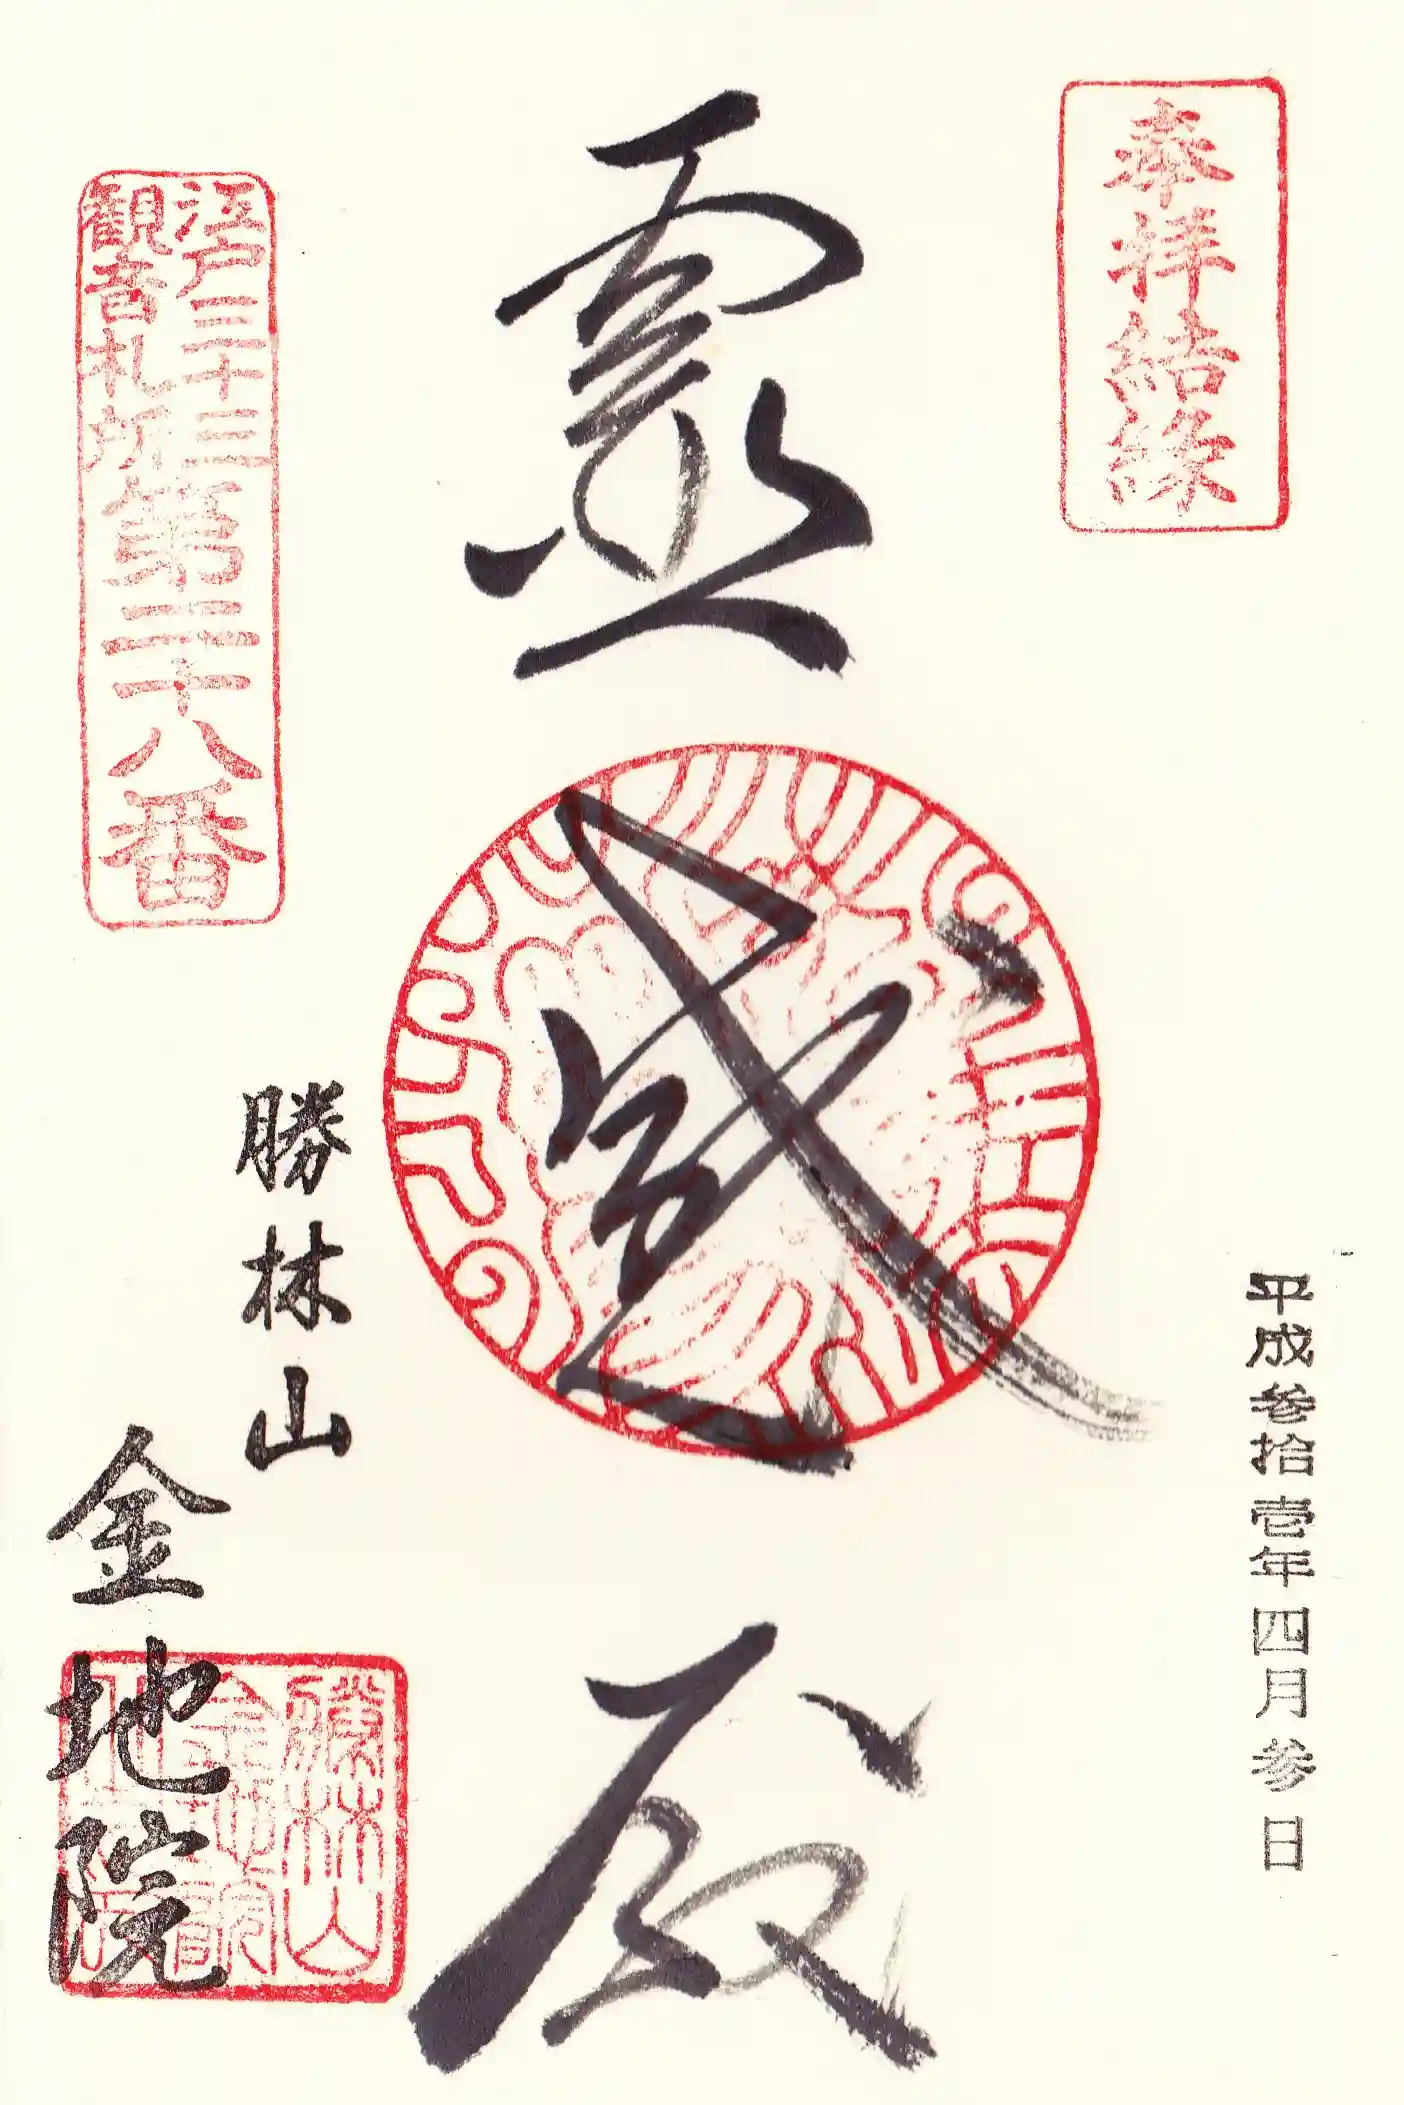 奉拝結縁
平成参拾壱年四月参日
靈感殿
江戸三十三
観音札所
第二十八番
勝林山
金地院
勝林山
金地院